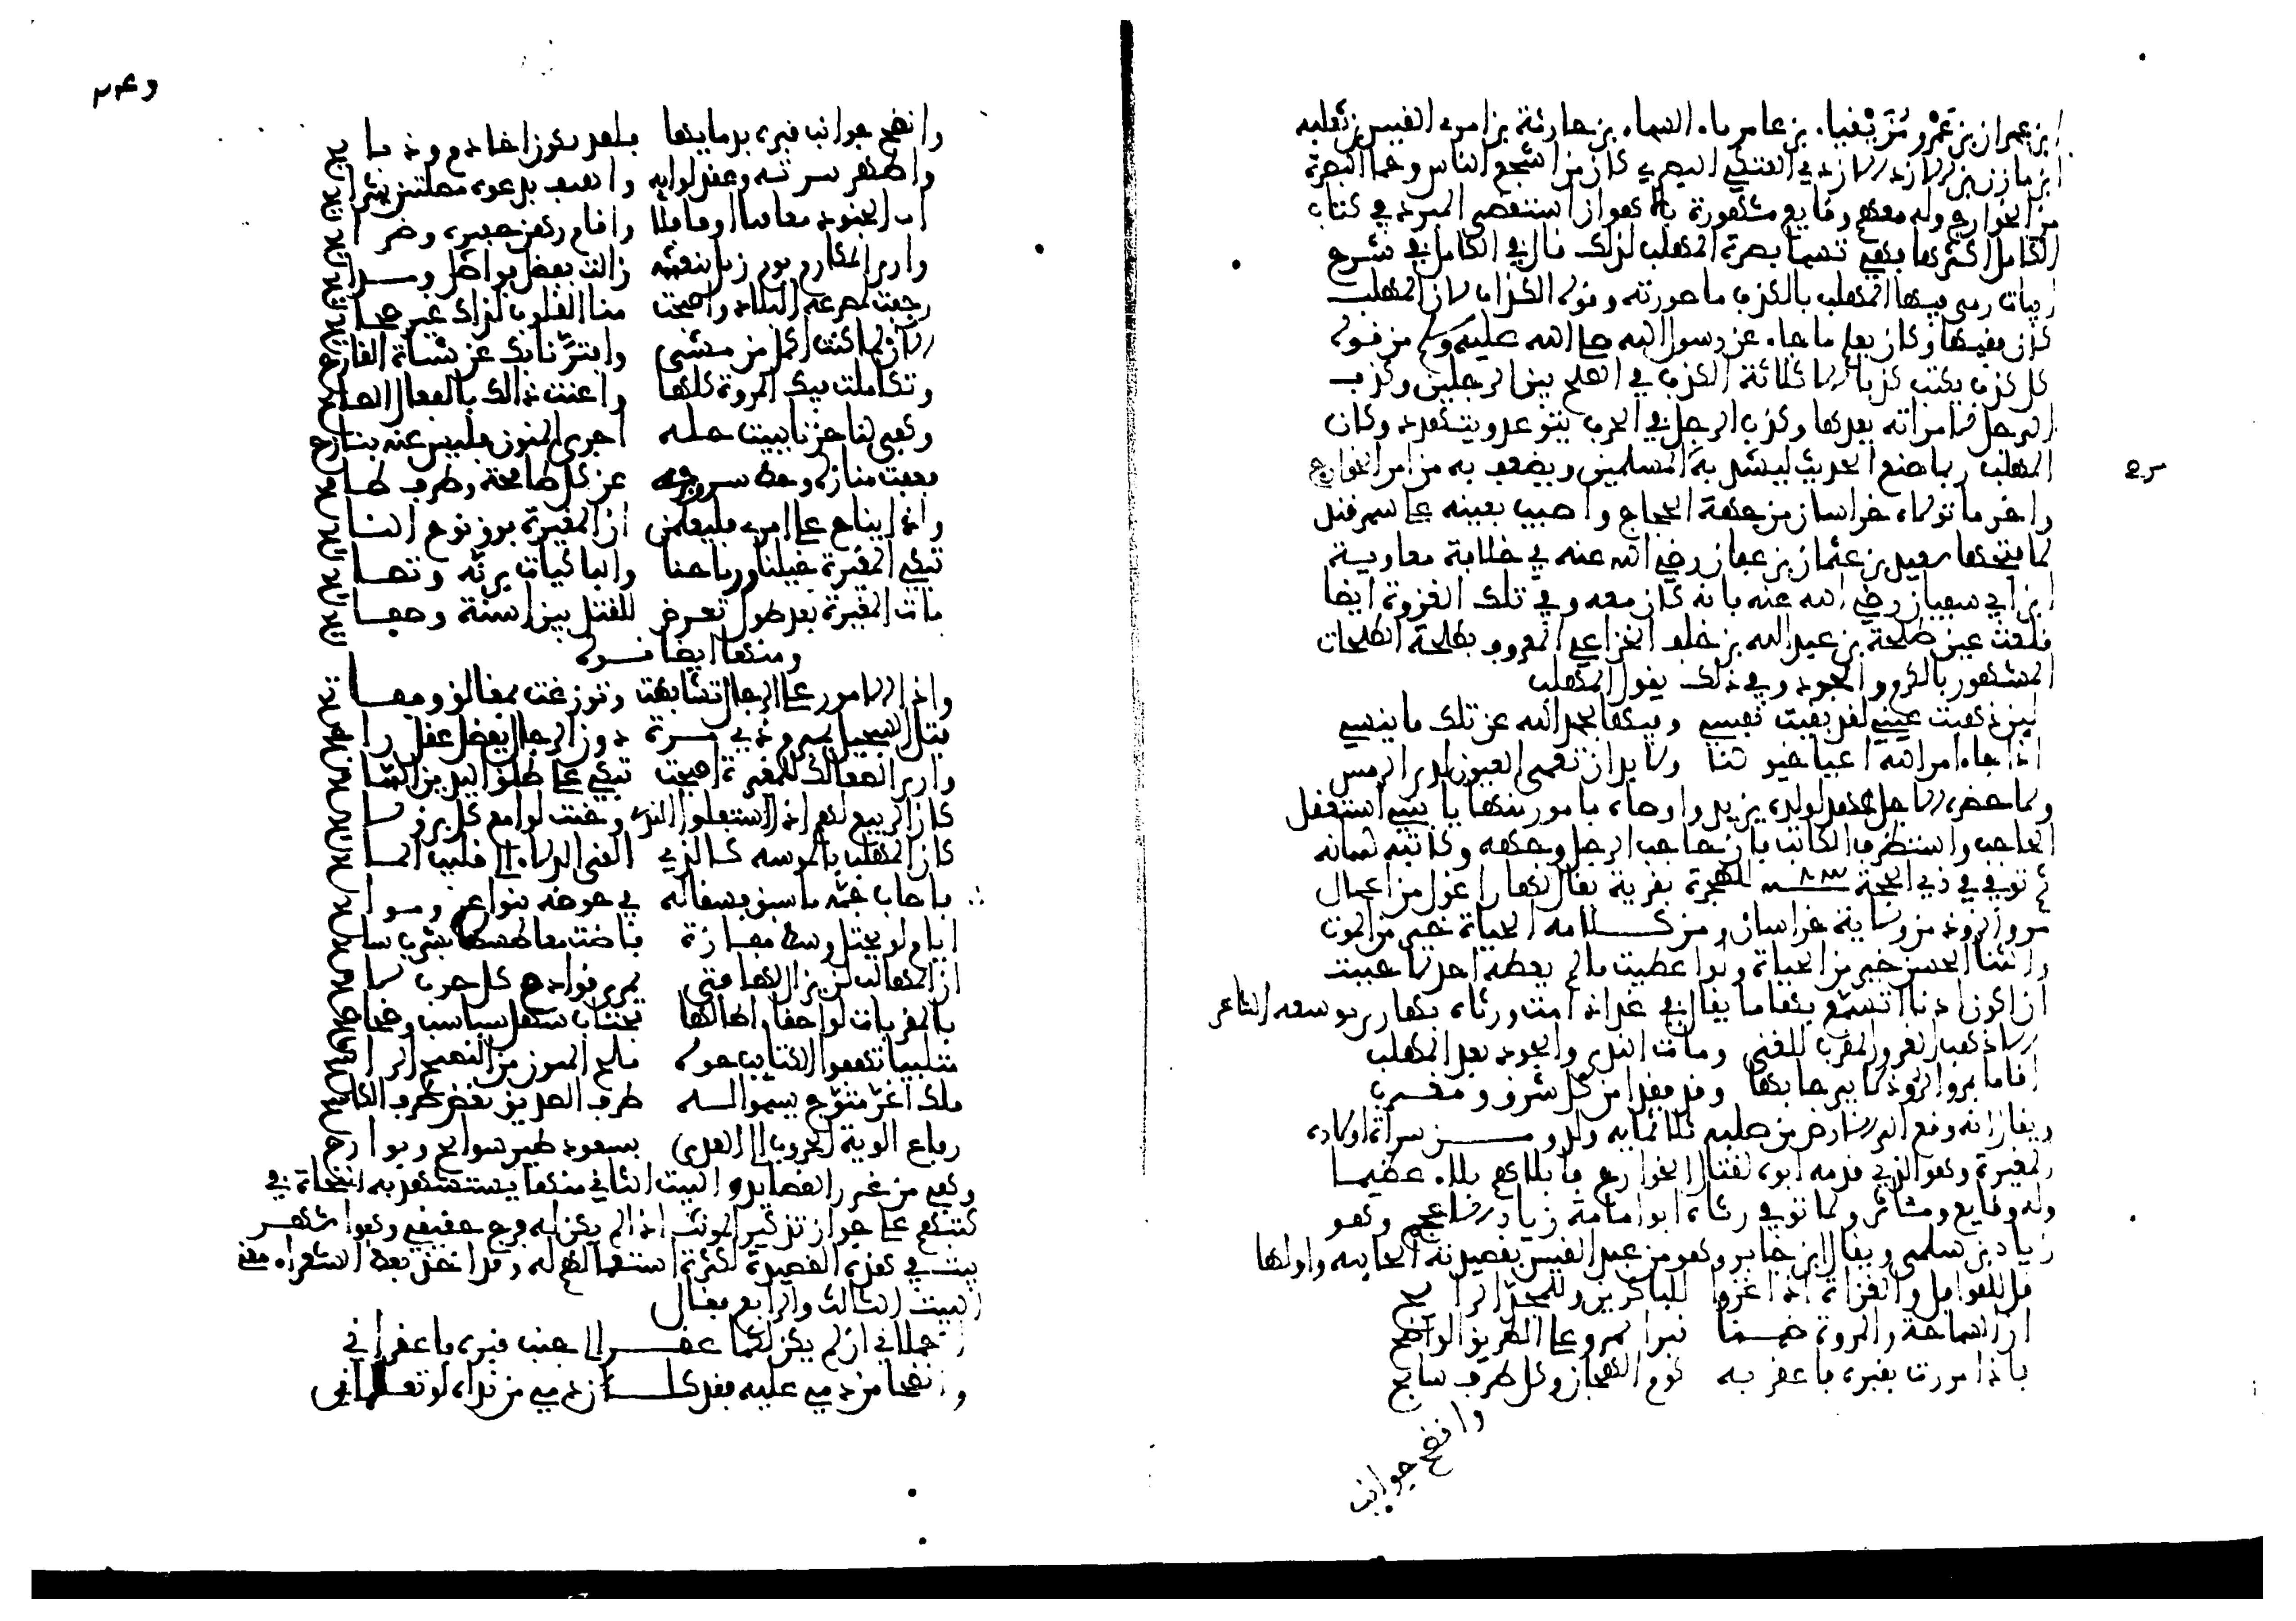 ابن عمران بن عمرو مزيقياء بن عامر ماء السماء بن حارثة بن امرء القيس بن ثعلبه
ابن مازن بن الازد الازدي العتكي البصري كان من اشجع الناس وحما البصرة
من الخوارج وله معهم وقايع مشهورة بالاهواز استقصى المبرد في كتاب
الكامل اكثرها فهي تسما بصرة المهلب لذلك قال في الكامل في شرح
ابيات رمى فيها المهلب بالكذب ما صورته وقوله الكذاب لان المهلب
كان فقيها وكان يعلم ما جاء عن رسول الله صلى الله عليه وسلم من قوله
كل كذب يكتب كذبا الا ثلاثة الكذب في الصلح بين الرجلين وكذب
الرجل لامراته يعدها وكذب الرجل في الحرب يتوعد ويتهدد وكان
المهلب ربما صنع الحديث ليشد به المسلمين ويضعف به من امر الخوارج
واخر ما تولاه خراسان من جهة الحجاج واصيب بعينه على سمرقند
لما فتحها سعيد بن عثمان بن عفان رضي الله عنه في خلافة معاوية
ابن ابي سفيان رضي الله عنه فانه كان معه وفي تلك الغزوة ايضا
قلعت عين طلحة بن عبد الله بن خلف الخزاعي المعروف بطلحة الطلحات
المشهور بالكرم والجود وفي ذلك يقول المهلب
لين ذهبت عيني لقد بقيت نفسي وفيها بحمد الله عن تلك ما ينسي
اذا جاء امر الله اعيا خيولنا ولا بد ان تعمى العيون لدى الرمس
ولما حضره الاجل عهد لولده يزيد واوصاه بامور منها يا بني استعقل
الحاجب واستظرف الكاتب فان حاجب الرجل وجهه وكاتبه لسانه
ثم توفي في ذي الحجة سنة ٨٣ للهجرة بقرية يقال لها زاغول من اعمال
مرو الروذ من ولاية خراسان ومن كلامه الحياة خير من الموت
والثنا الحسن خير من الحياة ولو اعطيت ما لم يعطه احد لاحببت
ان اكون اذنا تسمع بها ما يقال في غدا اذا مت ورثاه نهار بن توسعه الشاعر
الا ذهب الغزو المقرب للغنى ومات الندى والجود بعد المهلب
اقاما بمرو الروذ لا يبرحانها وقد فقدا من كل شرق ومغرب
ويقال انه وقع الى الارض من صلبه ثلاثمايه ولد ومن سراة اولاده
المغيرة وهو الذي قدمه ابوه لقتال الخوارج فابلا بهم بلاء عظيما
وله وقايع ومشاثر ولما توفي رثاه ابوا مامة زياد الاعجم وهو
زياد بن سلمى ويقال ابن جابر وهو من عبد القيس بقصيدته الحاييه واولها
قل للقوافل والغزاة اذا غزوا للباكرين وللمجد الرايح
ان السماحة والمروة ضمنا قبرا بمرو على الطريق الواضح
فاذا مررت بقبره فاعقر به كوم الهجان وكل طرف سابح
وانضح جوانب
وانضح جوانب قبره بدمايها فلقد يكون اخا دم وذبايح
واظهر ببزته وعقد لوايه واهتف بدعوة مصلتين شرامح
اب الجنود معاقلا او قافلا واقام رهن حفيرة وضرايح
وارى المكارم يوم زيل بنعشه زالت بفضل فواضل ومدايح
رجفت لمصرعه البلاد واصبحت منا القلوب لذاك غير صحايح
الان لما كنت اكمل من مشى وافتر نابك عن شباة القارح
وتكاملت فيك المروة كلها واعنت ذالك بالفعال الصالح
وكفى لنا حزنا ببيت حله اخرى المنون فليس عنه بنازح
فعفت منازله وحط سروجه عن كل طامحة وطرف طامح
واذا يناح على امرء فليعلمن ان المغيرة فوق نوح النايح
تبكي المغيرة خيلنا ورماحنا والباكيات برنه وتصايح
مات المغيرة بعد طول تعرض للقتل بين اسنة وصفايح
ومنها ايضا قوله
واذا الامور على الرجال تشابهت وتوزعت بمغالق ومفاتح
فتل السحيل بمبرم ذي مرة دون الرجال بفضل عقل راجح
وارى الصعالك للمغيرة اصبحت تبكي على طلق اليدين مسامح
كان الربيع لهم اذا انتجعوا الندى وخبت لوامع كل برق لامح
كان المهلب بالمغيرة كالذي القى الدلاء الى قليب المايح
فاصاب جمة ما استقى فسقى له في حوضه بنوازع ومواتح
ايام لو يحتل وسط مفازة فاضت معاطشها بشرب سايح
ان المهالب لن يزال لها فتى يمري قوادم كل حرب لاقح
بالمقربات لواحقا اطالها تجتاب سهل سباسب وصحاصح
متلببا تهفوا الكتايب حوله ملح المتون من النضيح الراشح
ملك اغر متوج يسموا له طرف الصديق بغض طرف الكاشح
رفاع الوية الحروب الى العدى بسعود طير سوانح وبوارح
وهي من غرر القصايد والبيت الثاني منها يستشهد به النحاة في
كتبهم على جواز تذكير المونث اذا لم يكن له فرج حقيقي وهوا شهر
بيت في هذه القصيدة لكثرة استعمالهم له وقد اخذ بعض الشعراء معنى
البيت الثالث والرابع فقال
احملاني ان لم يكن لكما عقر الى جنب قبره فاعقراني
وانضحا من دمي عليه فقد كان دمي من نداه لو تعلماني